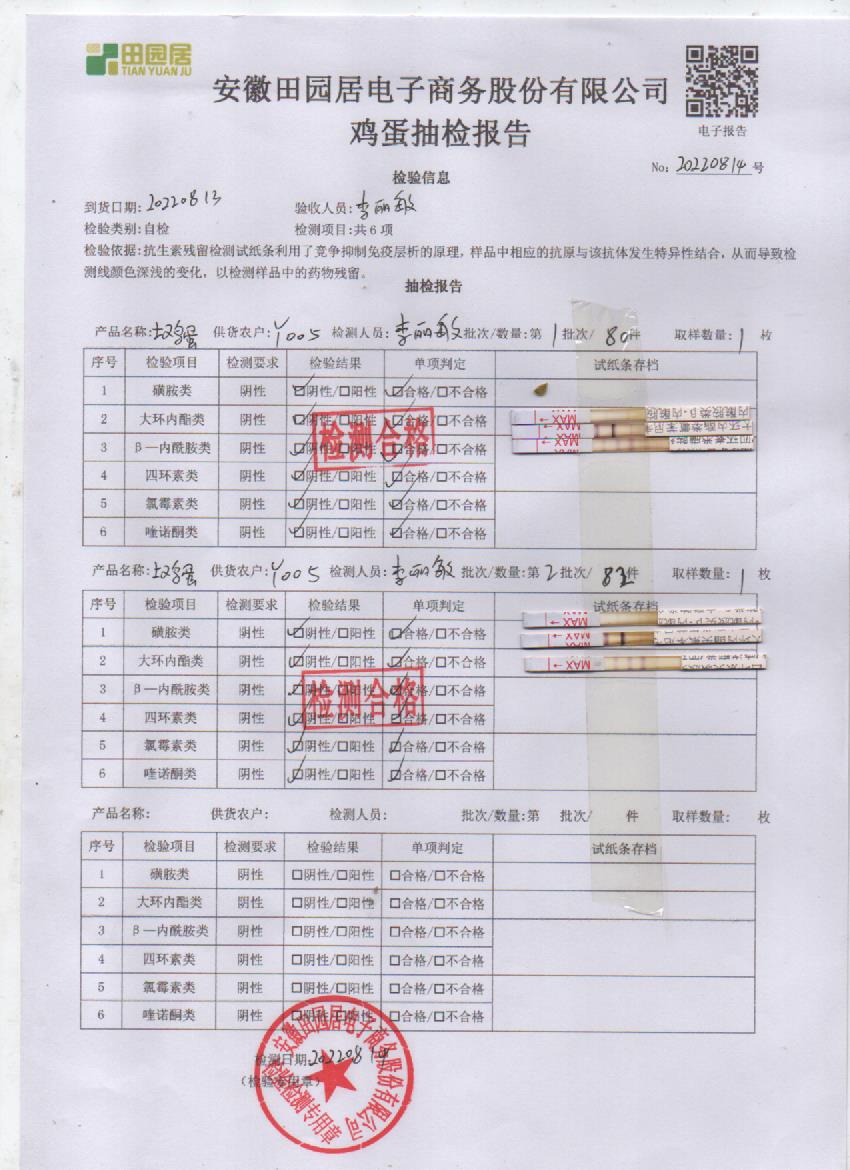 田园居
TIAN YUAN JU
安徽田园居电子商务股份有限公司
鸡蛋抽检报告
电子报告
No: 20220814 号
检验信息
到货日期: 20220813 验收人员: 李丽敏
检验类别: 自检 检测项目: 共6项
检验依据: 抗生素残留检测试纸条利用了竞争抑制免疫层析的原理, 样品中相应的抗原与该抗体发生特异性结合, 从而导致检
测线颜色深浅的变化, 以检测样品中的药物残留。
抽检报告
产品名称: 土鸡蛋 供货农户: Y005 检测人员: 李丽敏 批次/数量: 第1批次/ 80件 取样数量: 1 枚
序号 检验项目 检测要求 检验结果 单项判定 试纸条存档
1 磺胺类 阴性 ☑阴性/☐阳性 ☑合格/☐不合格
2 大环内酯类 阴性 ☑阴性/☐阳性 ☑合格/☐不合格
3 β—内酰胺类 阴性 ☑阴性/☐阳性 ☑合格/☐不合格
4 四环素类 阴性 ☑阴性/☐阳性 ☑合格/☐不合格
5 氯霉素类 阴性 ☑阴性/☐阳性 ☑合格/☐不合格
6 喹诺酮类 阴性 ☑阴性/☐阳性 ☑合格/☐不合格
检测合格
MAX
MAX
MAX
产品名称: 土鸡蛋 供货农户: Y005 检测人员: 李丽敏 批次/数量: 第2批次/ 件 取样数量: 1 枚
序号 检验项目 检测要求 检验结果 单项判定 试纸条存档
1 磺胺类 阴性 ☑阴性/☐阳性 ☑合格/☐不合格
2 大环内酯类 阴性 ☑阴性/☐阳性 ☑合格/☐不合格
3 β—内酰胺类 阴性 ☑阴性/☐阳性 ☑合格/☐不合格
4 四环素类 阴性 ☑阴性/☐阳性 ☑合格/☐不合格
5 氯霉素类 阴性 ☑阴性/☐阳性 ☑合格/☐不合格
6 喹诺酮类 阴性 ☑阴性/☐阳性 ☑合格/☐不合格
检测合格
MAX
MAX
MAX
产品名称: 供货农户: 检测人员: 批次/数量: 第 批次/ 件 取样数量: 枚
序号 检验项目 检测要求 检验结果 单项判定 试纸条存档
1 磺胺类 阴性 ☐阴性/☐阳性 ☐合格/☐不合格
2 大环内酯类 阴性 ☐阴性/☐阳性 ☐合格/☐不合格
3 β—内酰胺类 阴性 ☐阴性/☐阳性 ☐合格/☐不合格
4 四环素类 阴性 ☐阴性/☐阳性 ☐合格/☐不合格
5 氯霉素类 阴性 ☐阴性/☐阳性 ☐合格/☐不合格
6 喹诺酮类 阴性 ☐阴性/☐阳性 ☐合格/☐不合格
检测日期: 20220814
(检验专用章)
安徽田园居电子商务股份有限公司
检验检测专用章